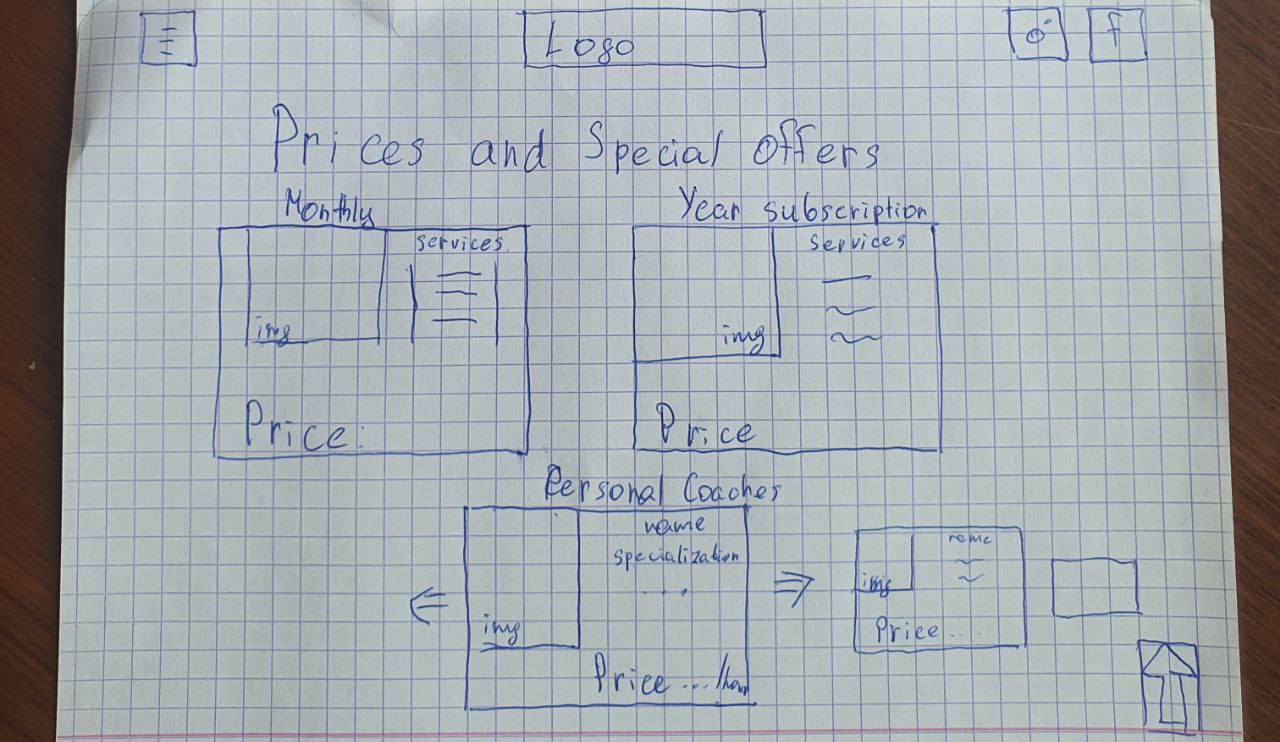 Logo
f
Prices and Special Offers
Monthly
Year subscription
services
img
Price:
Services
img
Price
Personal Coaches
name
specialization
...
img
Price .../hour
name
img
Price ...